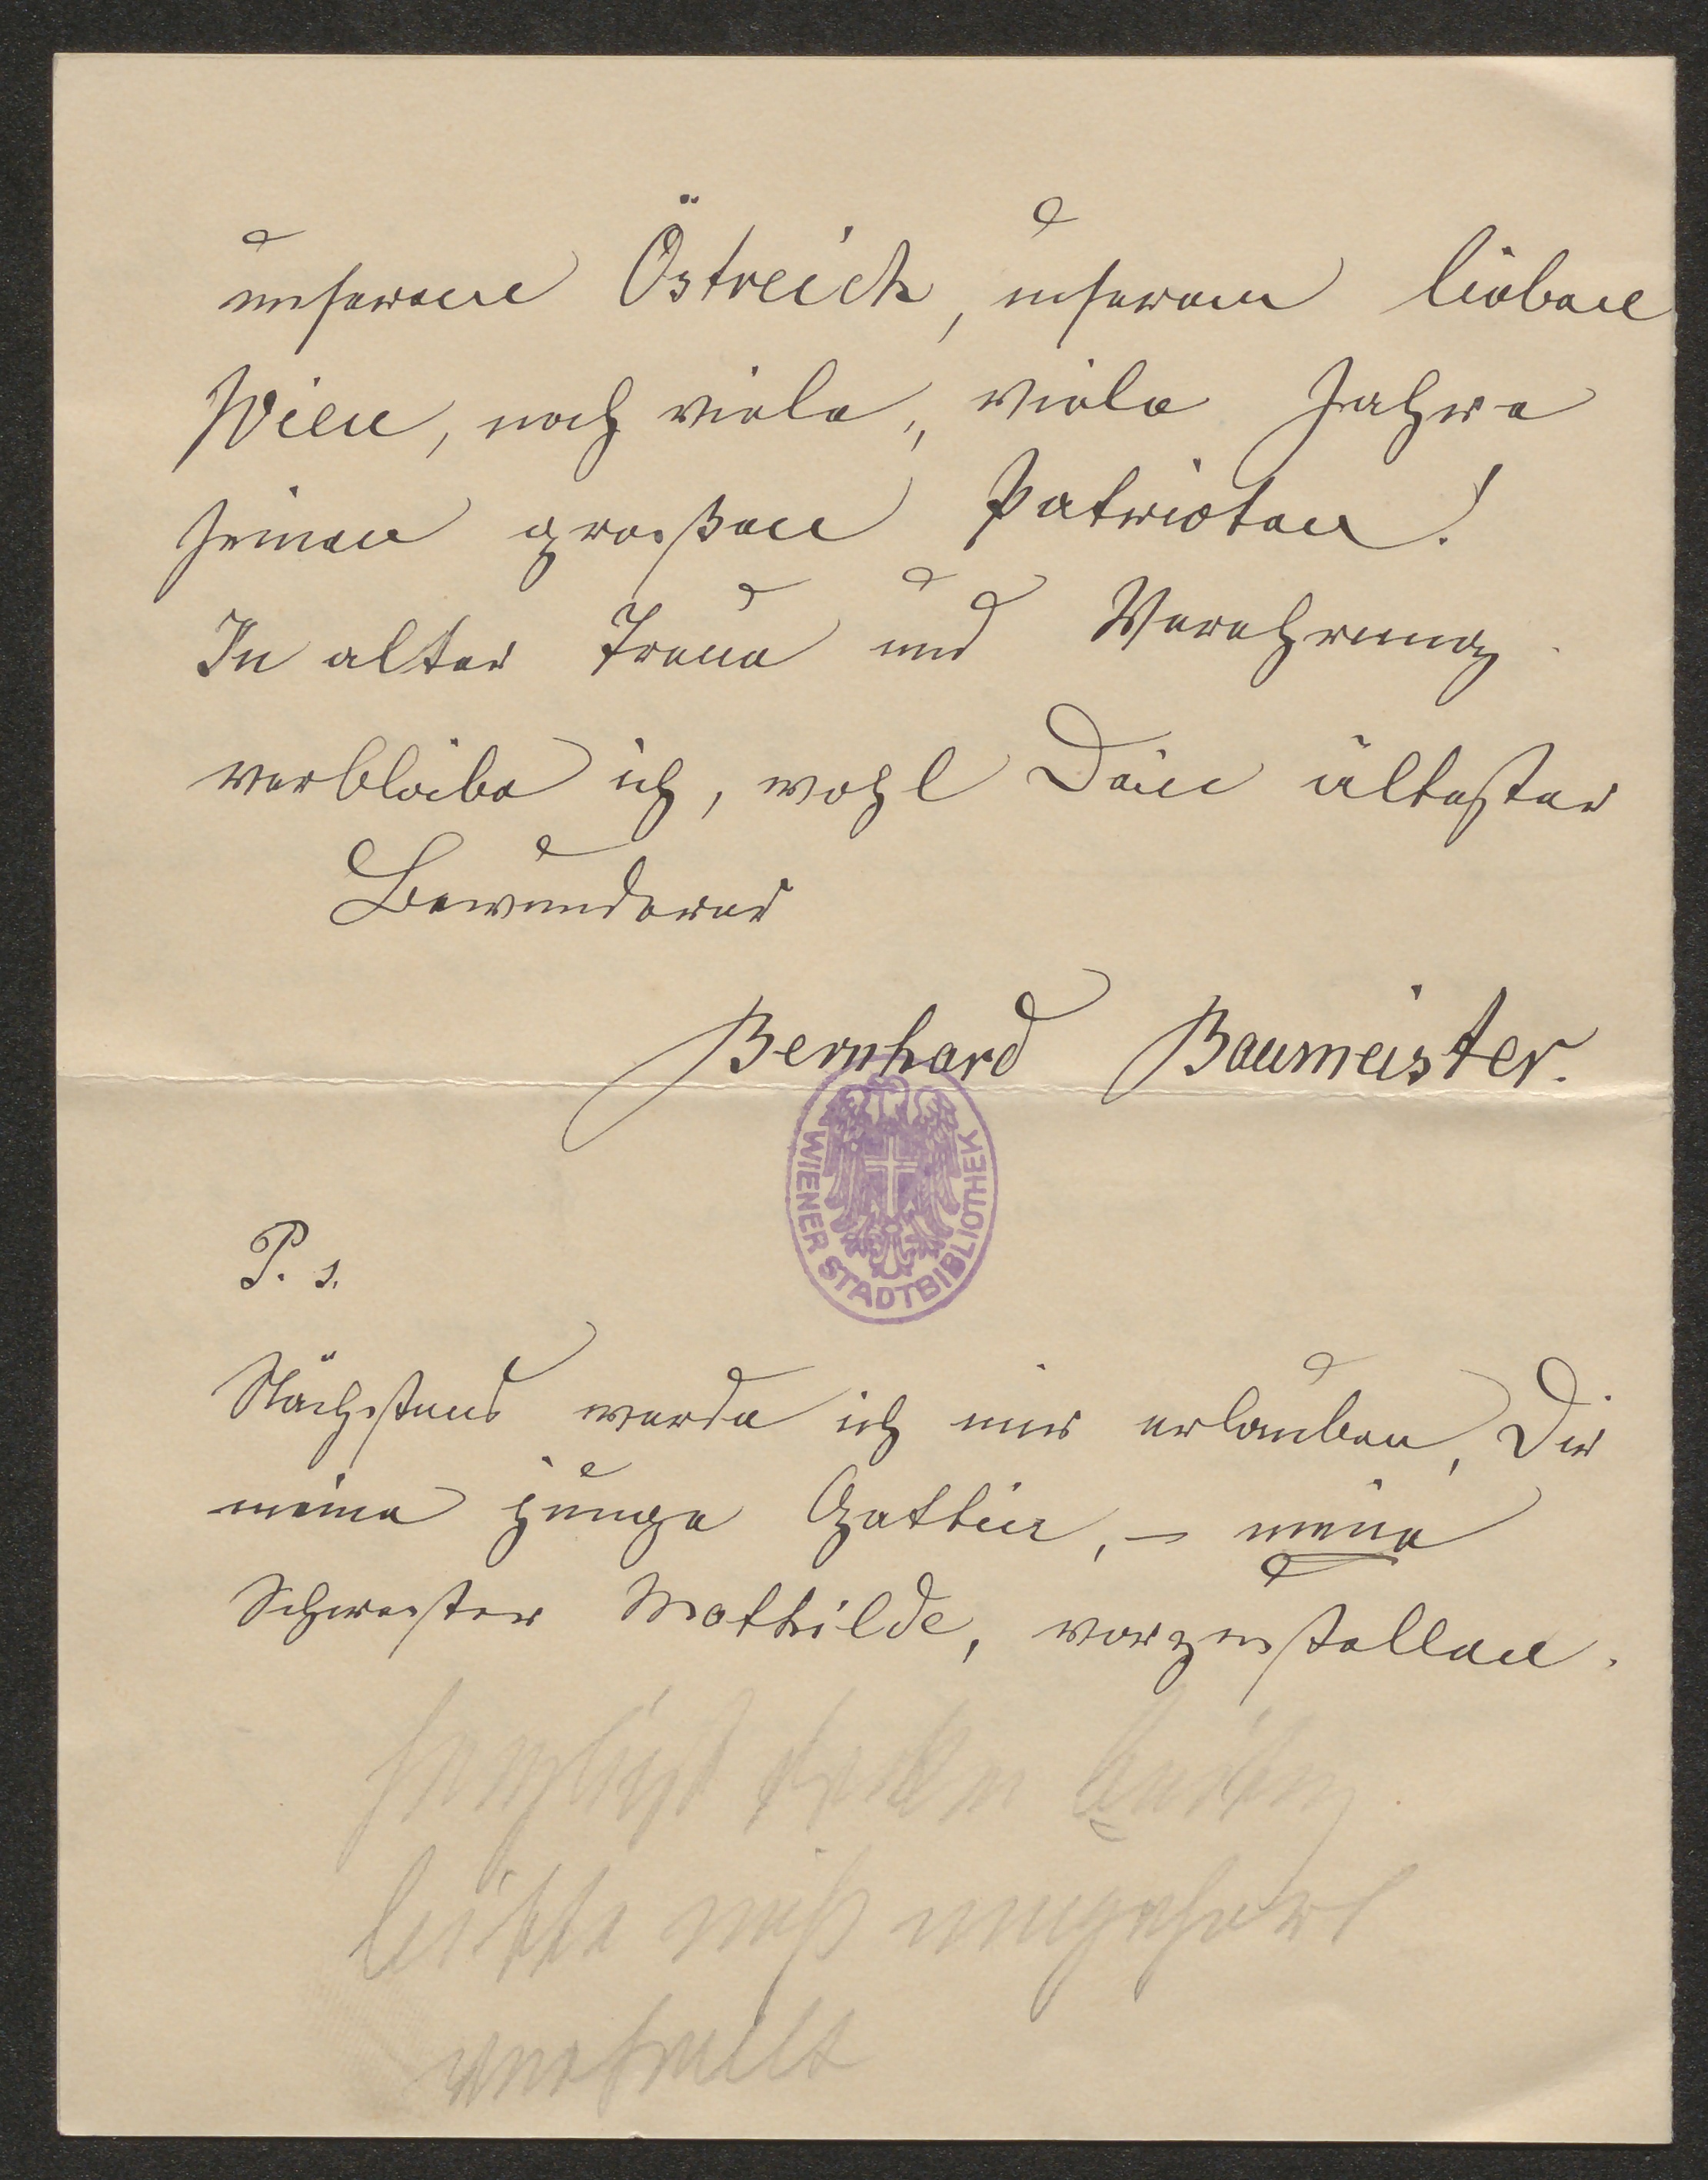 unserem Östreich, unserem lieben
Wien, noch viele, viele Jahre
seinen großen Patrioten!
In alter Treue und Verehrung
verbleibe ich, wohl Dein ältester
Bewunderer
Bernhard Baumeister.
WIENER STADTBIBLIOTHEK
P. s.
Nächstens werde ich mir erlauben, Dir
meine junge Gattin, – meine
Schwester Mathilde, vorzustellen.